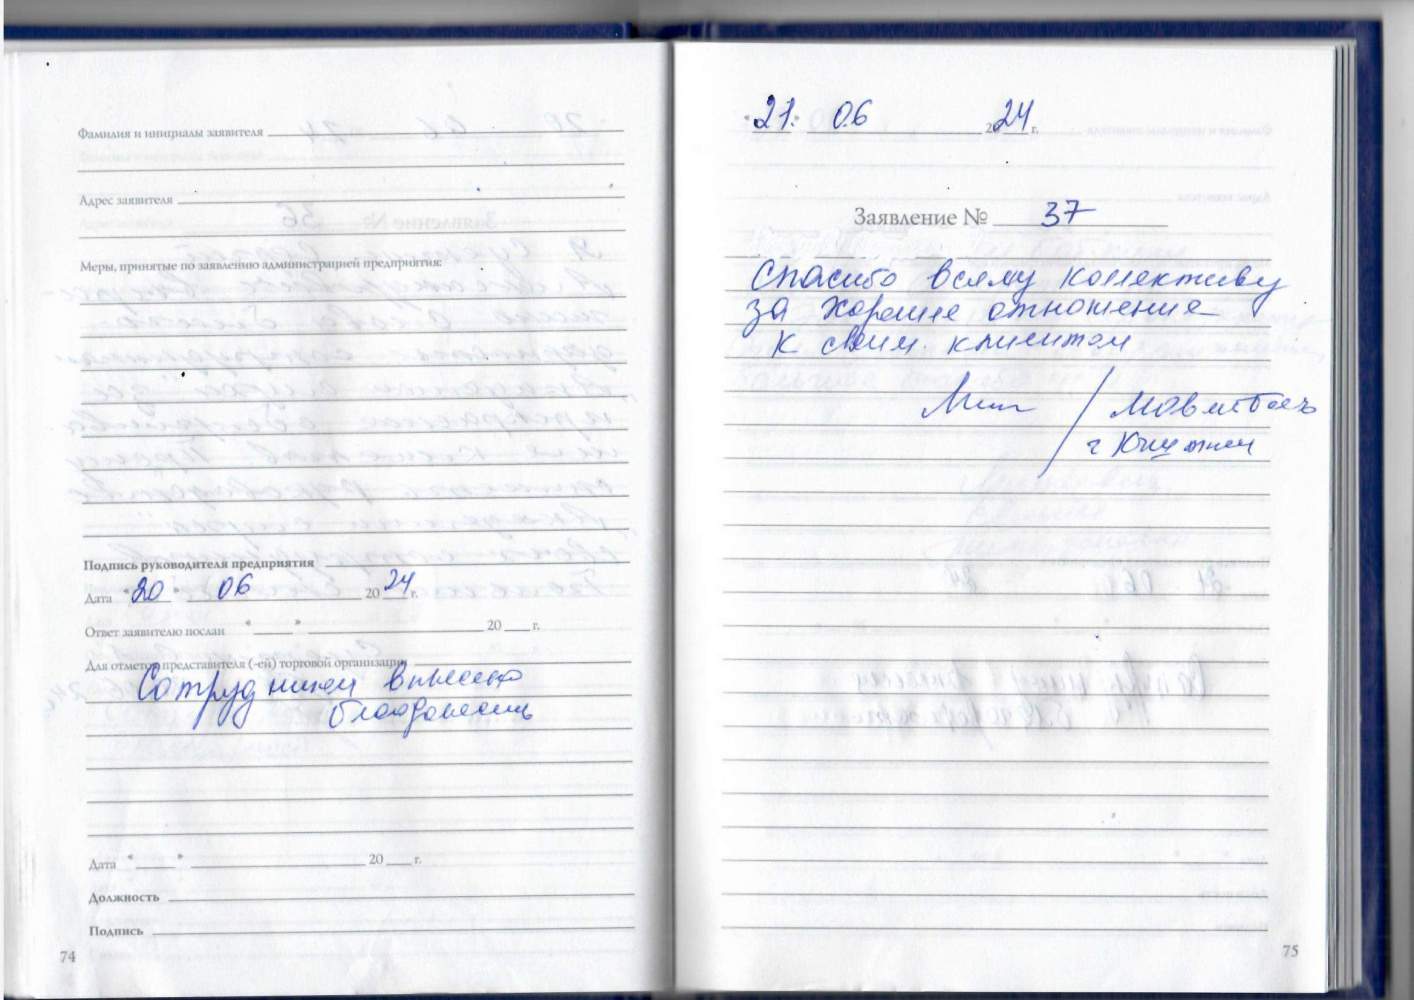 Фамилия и инициалы заявителя
Адрес заявителя
Меры, принятые по заявлению администрацией предприятия:
Подпись руководителя предприятия
Дата "20" 06 2024 г.
Ответ заявителю послан " " 20 г.
Для отметок представителя (-ей) торговой организации
Сотрудникам
Дата " " 20 г.
Должность
Подпись
74
"21" 06 2024 г.
Заявление № 37
Спасибо всему коллективу
за хорошее отношение
к своим клиентом
г
75